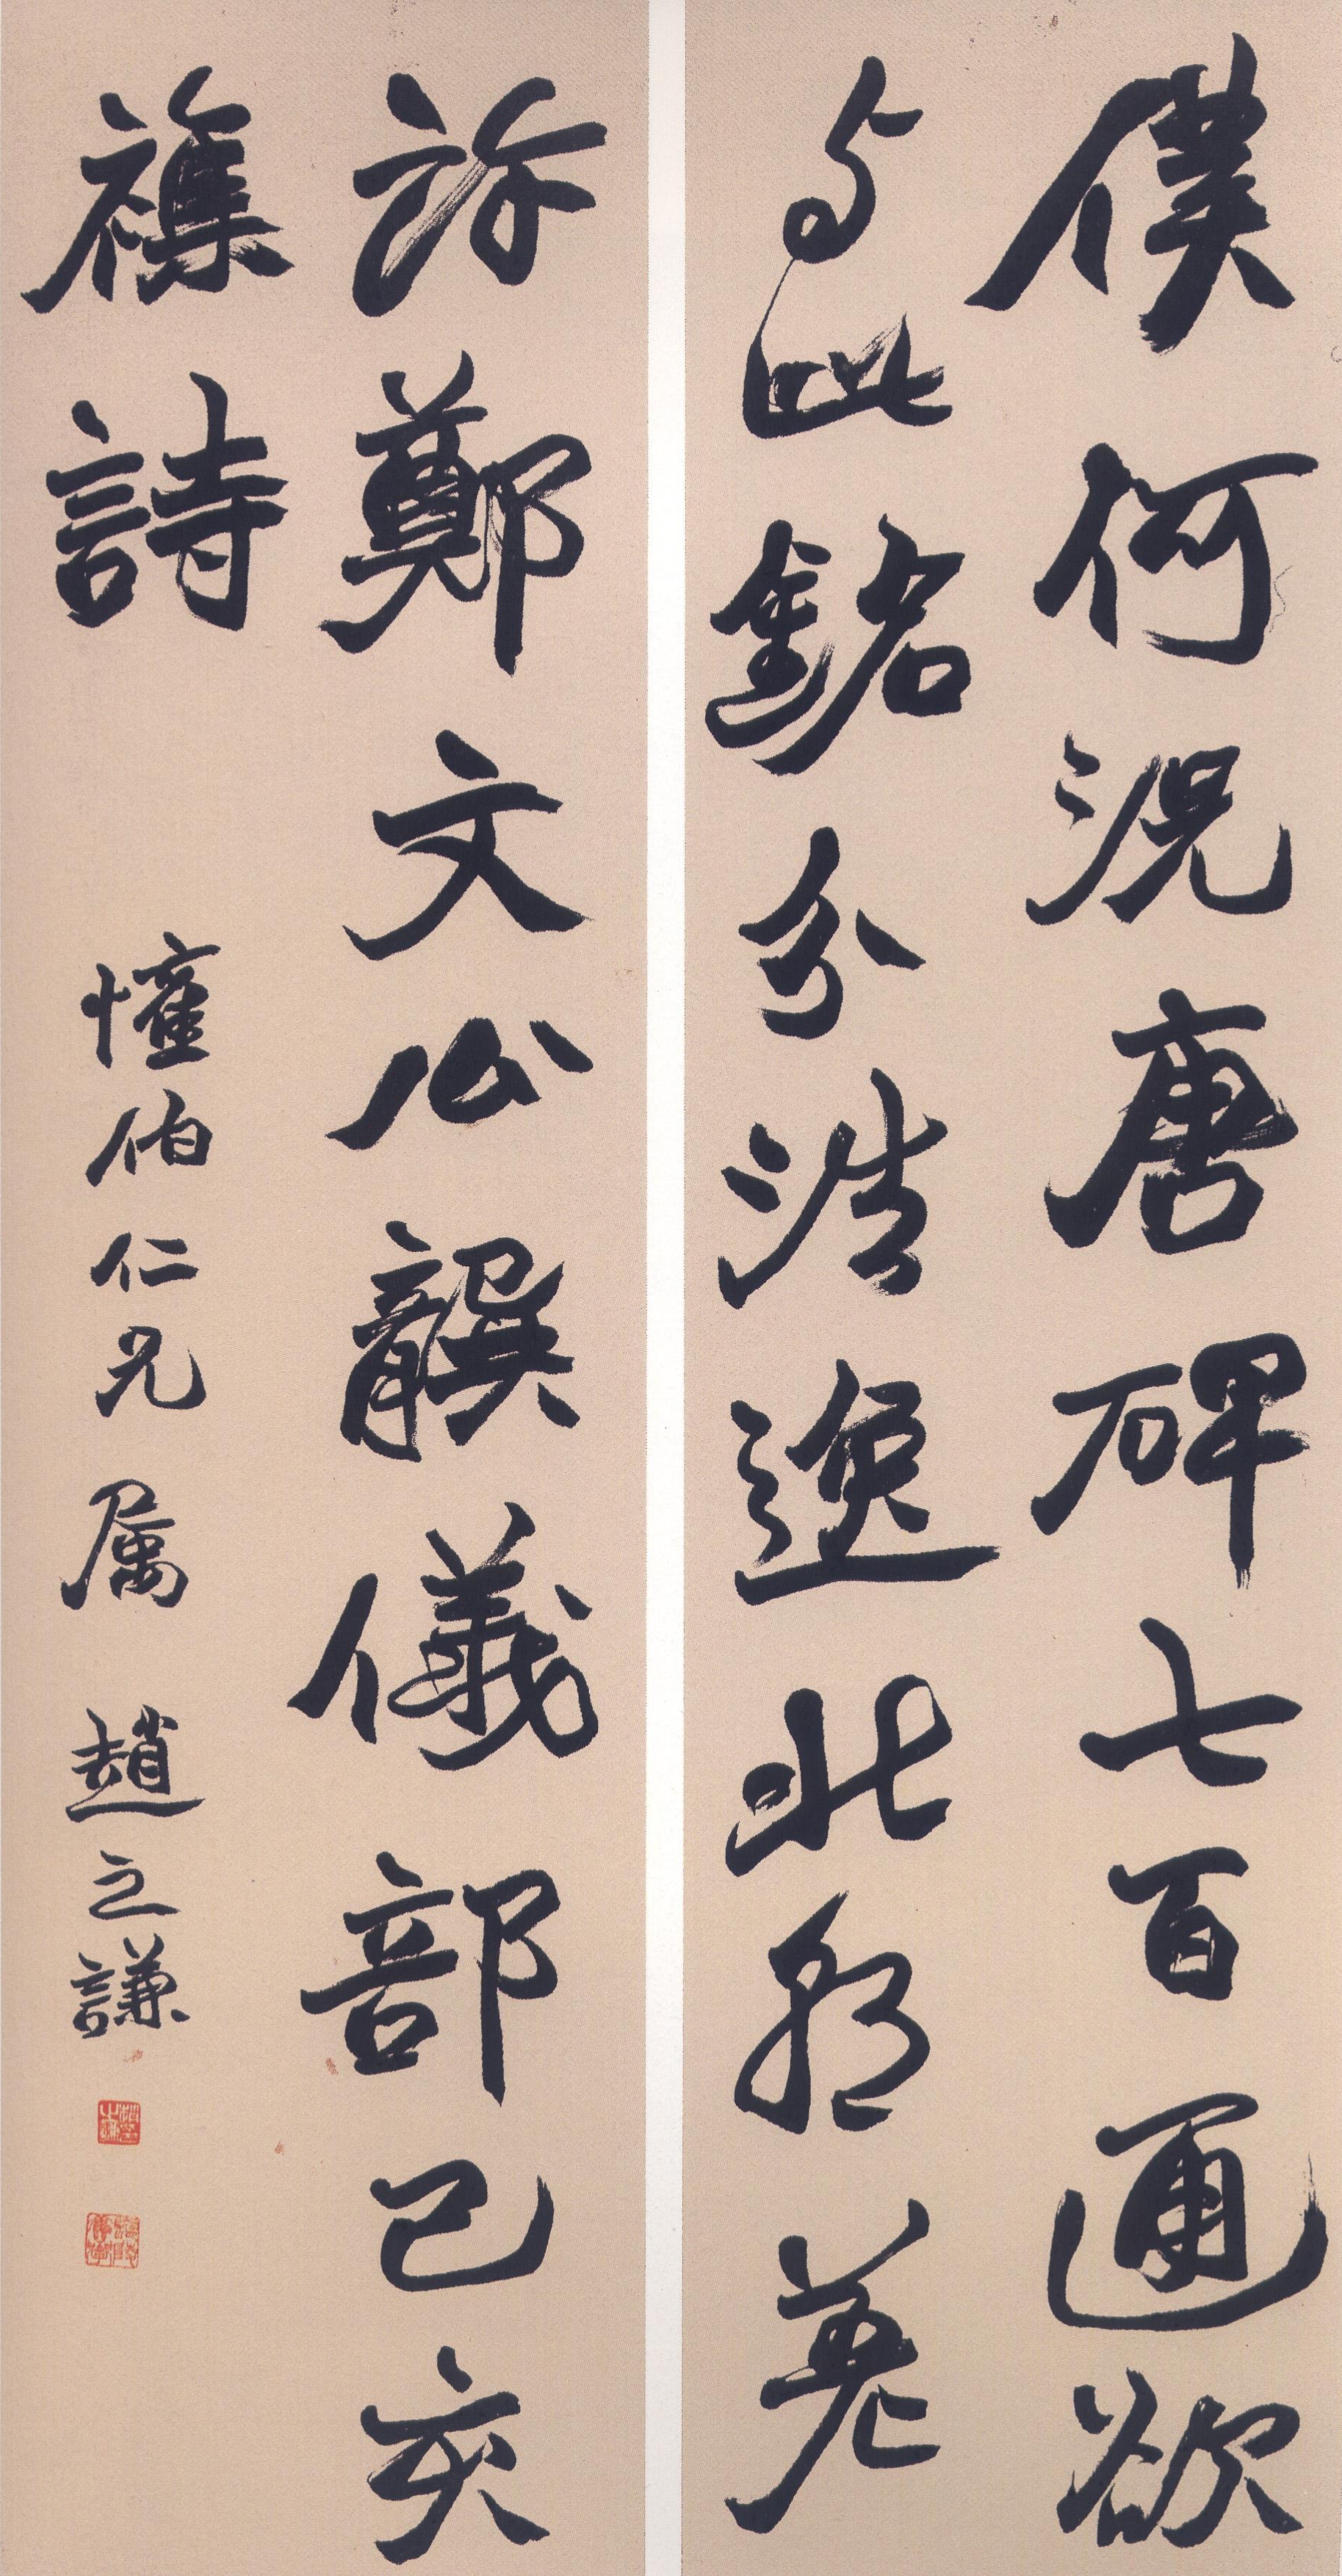 僕何況唐碑七百通欲
与此銘分浩逸北朝差
許鄭文公龔儀部己亥
襍詩
憧伯仁兄屬 趙之謙